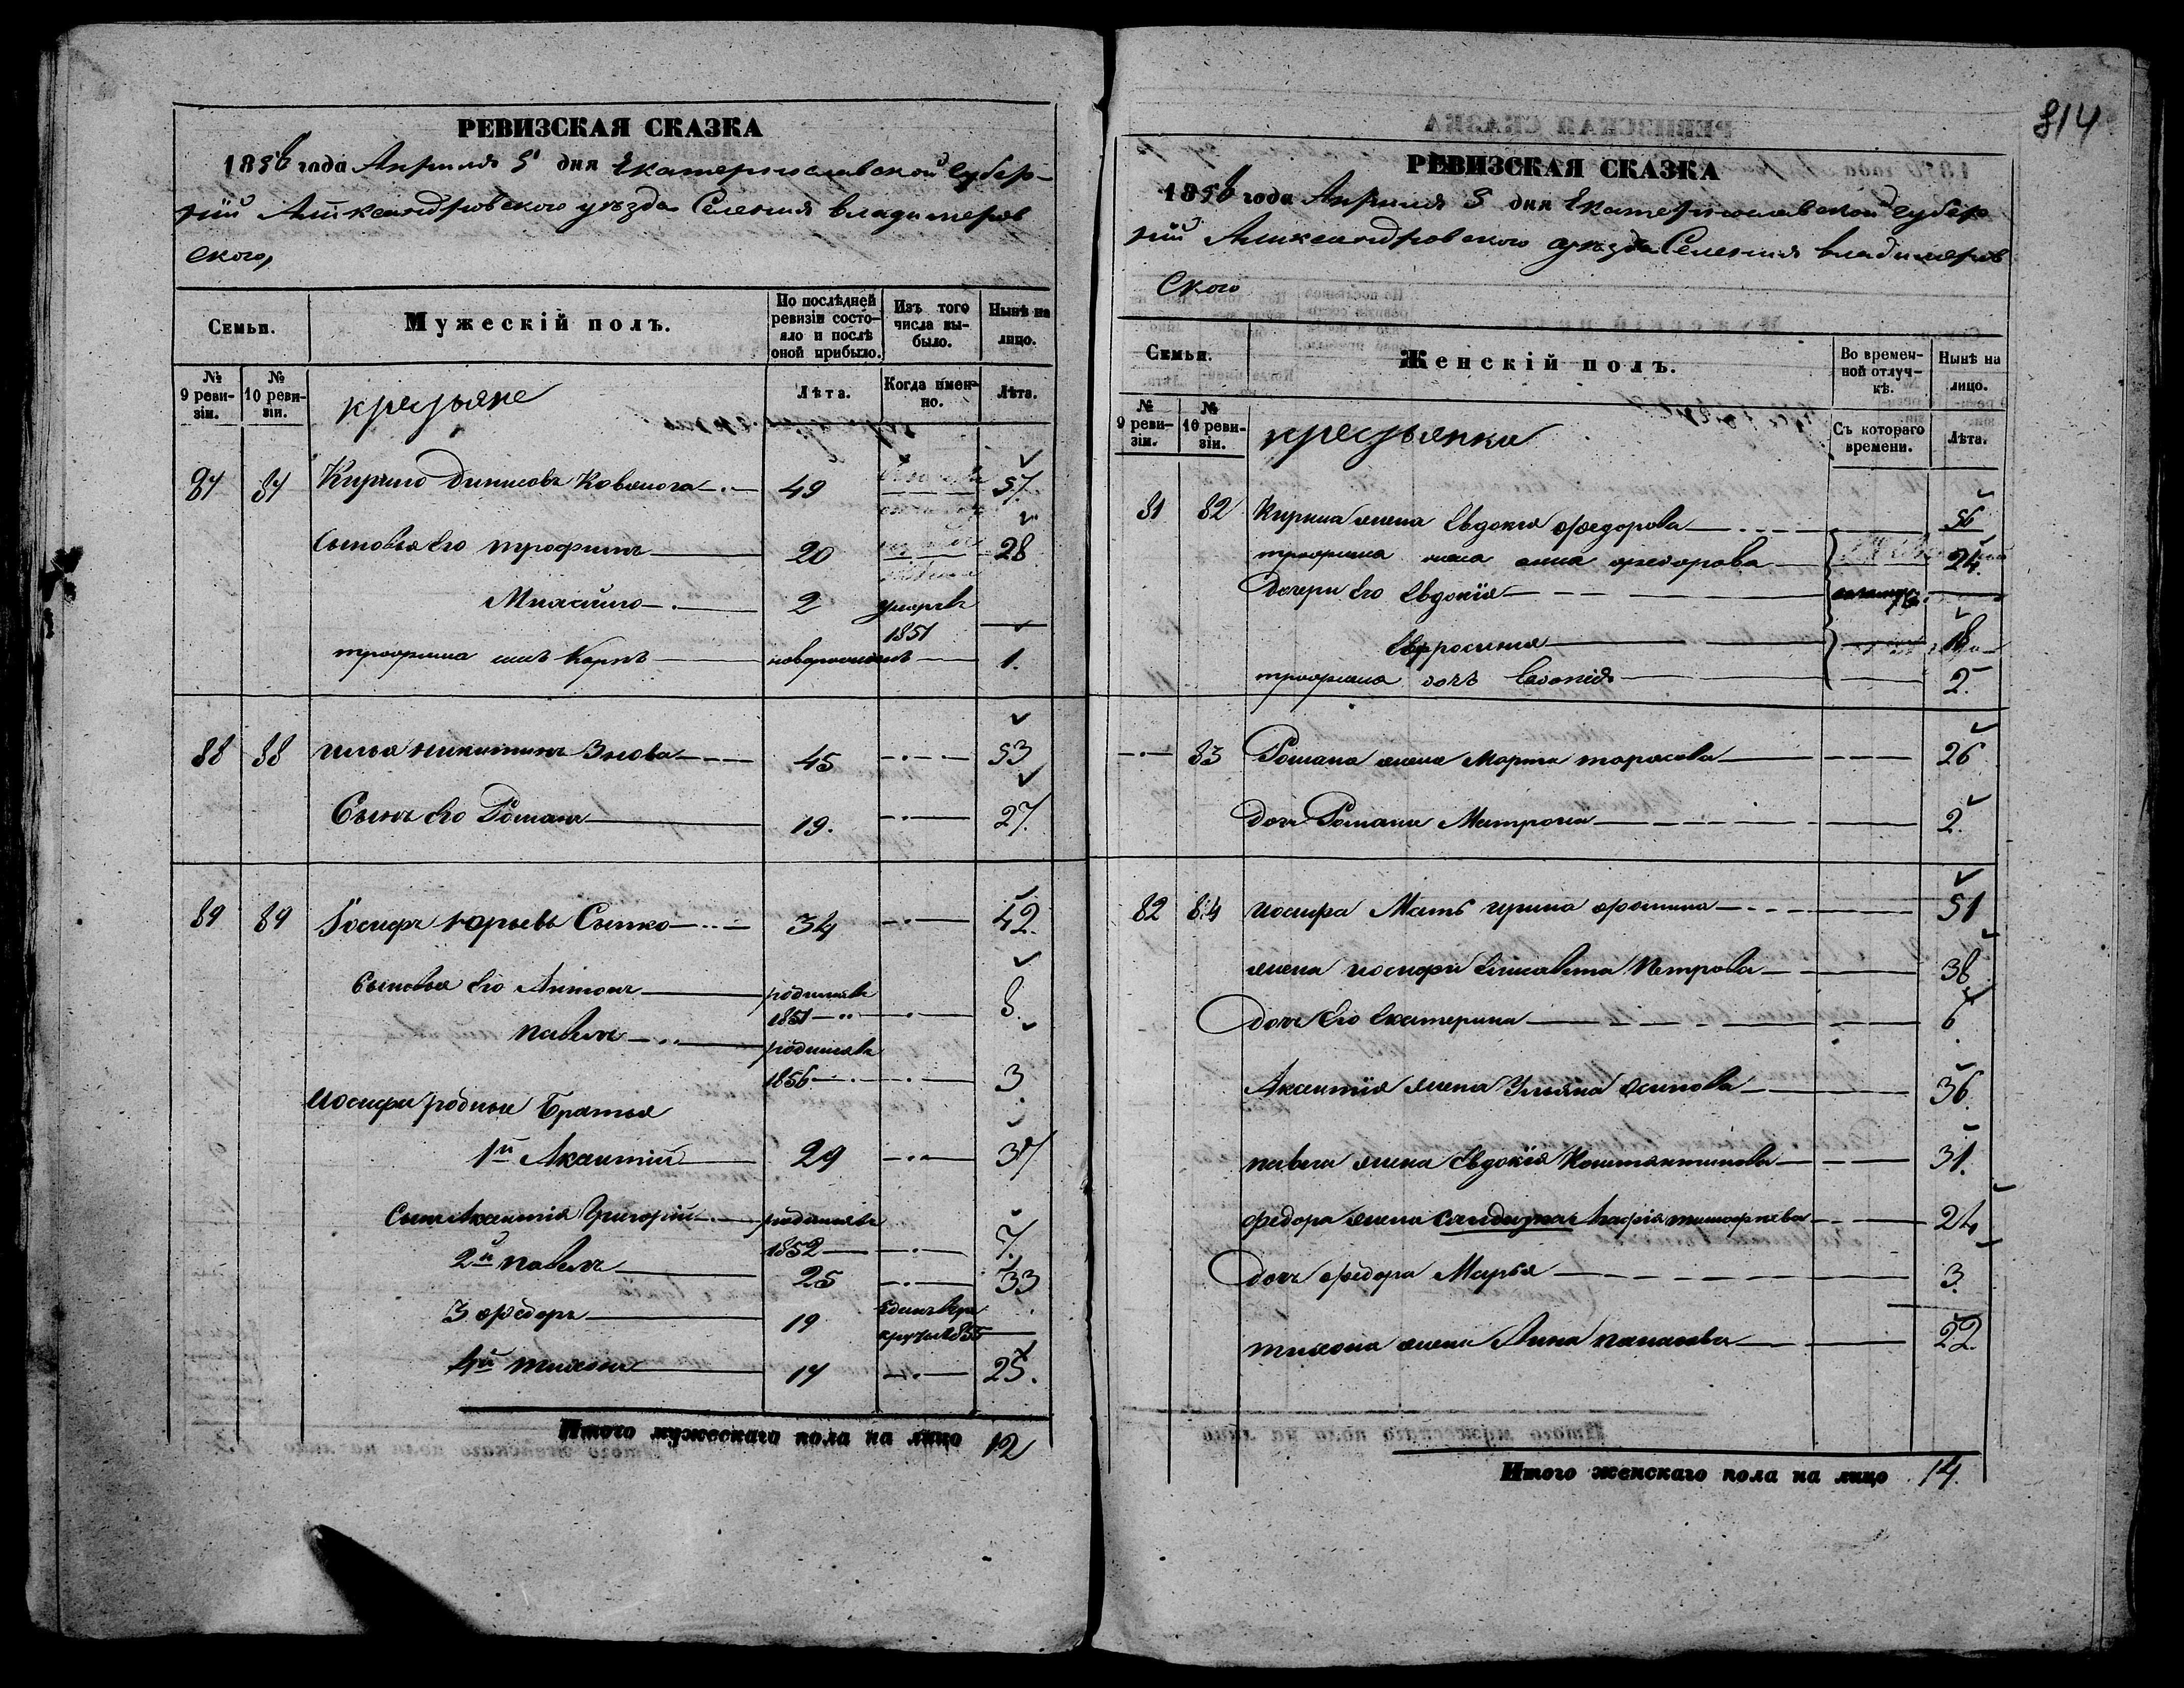 814
РЕВИЗСКАЯ СКАЗКА
1858 года Апреля 5 дня Екатеринославской Губер-
ніи Александровского уезда Селения владимеров
ского,
Семьи.
Мужескій полъ.
По послѣдней ревизіи состояло и послѣ оной прибыло.
Изъ того числа выбыло.
Нынѣ на лицо.
№ 9 ревизіи.
№ 10 ревизіи.
крестьяне
Лѣта.
Когда именно.
Лѣта.
Кирило Динисовъ 49 57.
Сыновья его трофимъ 20 28
2 умеръ
1851
трофима сынъ Карпъ новорожденъ 1.
88 88 илья никитинъ 45 53
Сынъ его Романъ 19. 27.
89 89 Іосифъ юрьевъ Сытко 34 42.
Сыновья его Антонъ родился
1851 8.
павелъ родился
1856 3
Иосифа родные братья
1й 29 37
Сынъ Григорій родился
1852 7.
2й павелъ 25 33
3 федоръ 19
4й тихонъ 17 25.
Итого мужескаго пола на лицо 12
РЕВИЗСКАЯ СКАЗКА
1858 года Апреля 5 дня Екатеринославской губер
ніи Александровского уезда Селения владимеров
ского
Семьи.
Женскій полъ.
Во временной отлучкѣ.
Нынѣ на лицо.
№ 9 ревизіи.
№ 10 ревизіи.
крестьянки
Съ котораго времени.
Лѣта.
81 82 Кирила жена Евдокия федорова 56
трофима жена анна федорова 24.
Дочери его Евдокія
Евфросиния 18
трофима дочь 2.
83 Романа жена Марта тарасова 26
дочь Романа Матрона 2.
82 84 иосифа Мать ирина фомина 51
жена иосифа Елисавета Петрова 38
дочь его Екатерина 6
жена Ульяна осипова 36.
павла жена Евдокія Константинова 31.
федора жена 24
дочь федора Марья 3.
тихона жена Анна 22.
Итого женскаго пола на лицо 14.